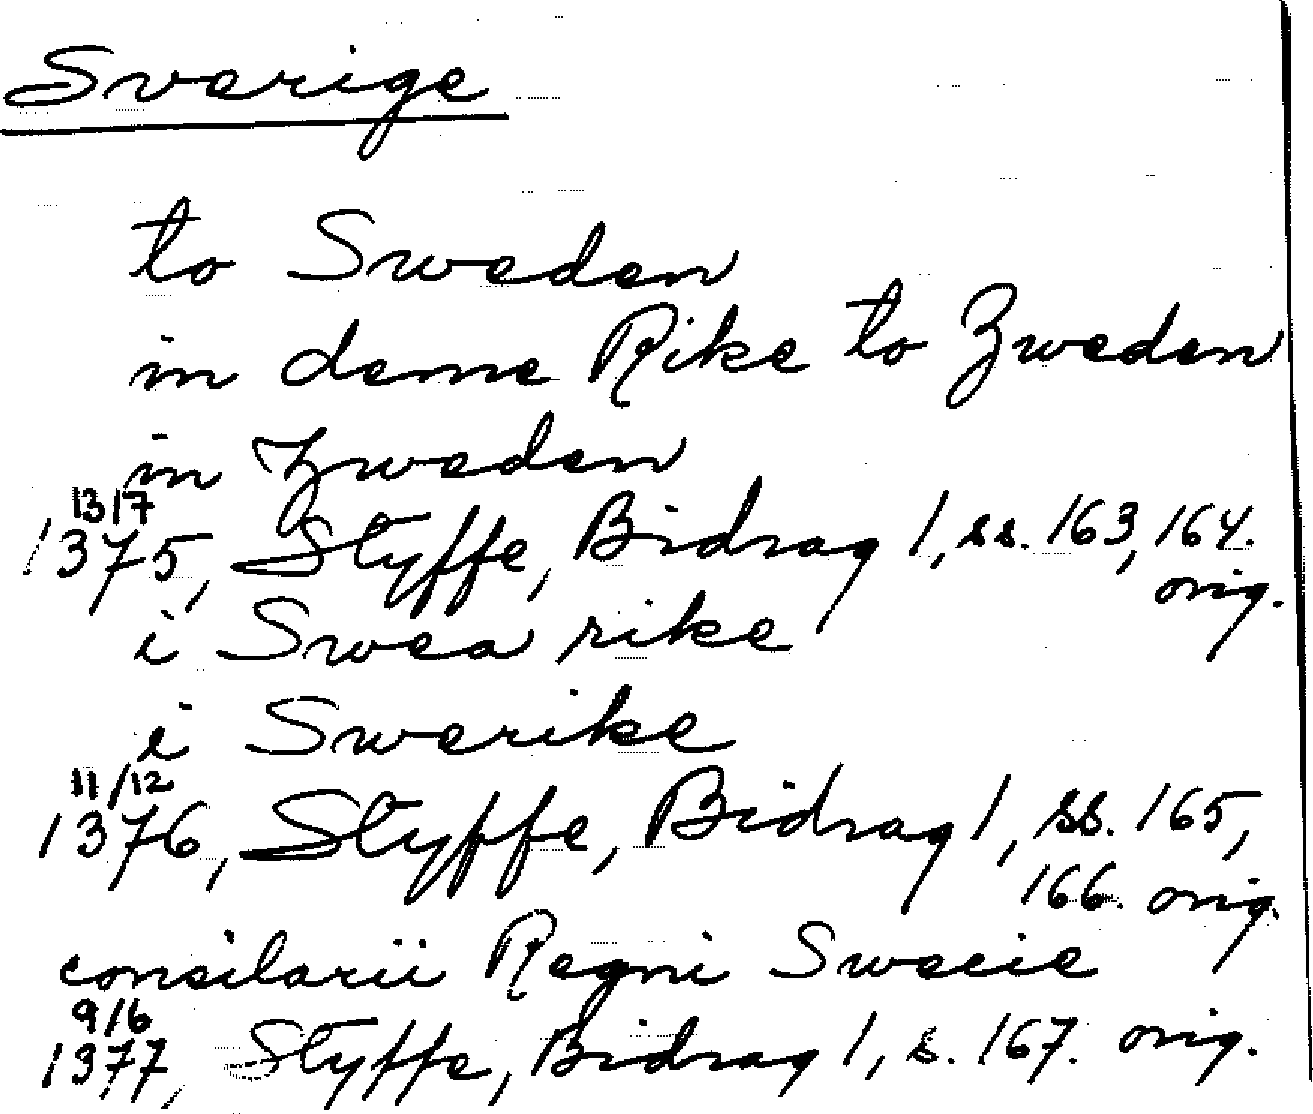 Sverige
to Sweden
in deme Rike to Zweden
in Zweden
13/7
1375, Styffe, Bidrag 1, ss. 163, 164.
orig.
i Swea rike
i Swerike
11/12
1376, Styffe, Bidrag 1, ss. 165,
166. orig.
consilarii Regni Swecie
9/6
1377, Styffe, Bidrag 1, s. 167. orig.